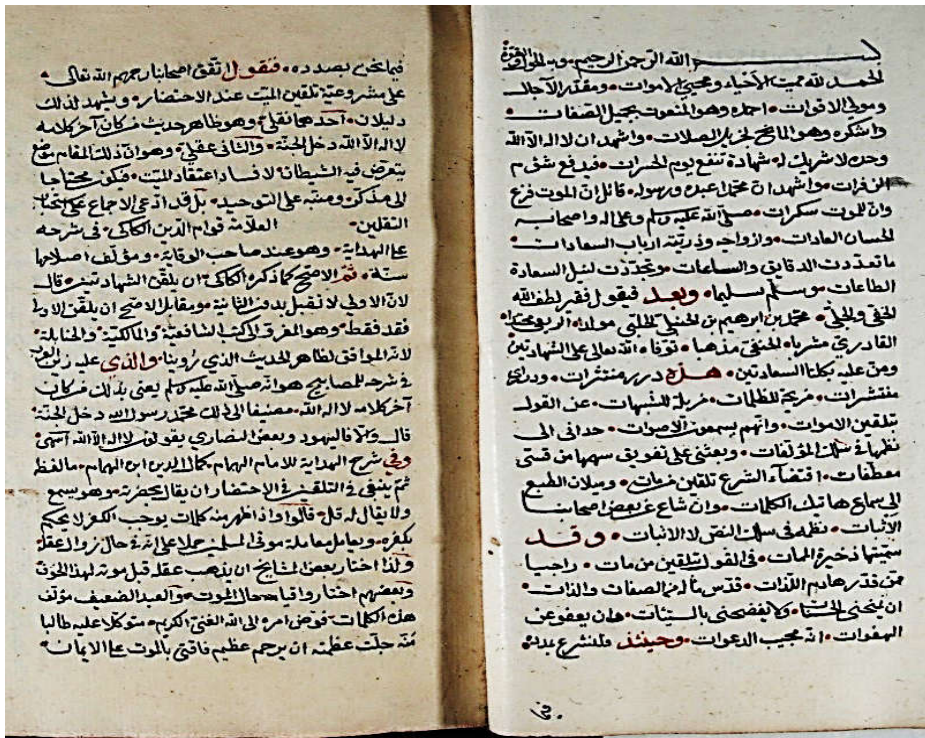 بسم الله الرحمن الرحيم وبه الحول والقوة
الحمد لله مميت الاحياء ومحيي الاموات ومقدر الآجال
ومولي الاقوات احمده وهو المنعوت بجميل الصفات
واشكره وهو المانح لجزيل الصلات واشهد ان لا اله الا الله
وحده لا شريك له شهادة تنفع يوم الحسرات فيدفع
الزفرات واشهد ان محمدا عبده ورسوله قائل ان الموت فزع
وان للموت سكرات صلى الله عليه وسلم وعلى اله واصحابه
الحسان العادات وازواجه وذريته ارباب السعادات
ما تعددت الدقايق والساعات وتجددت لنيل السعادة
الطاعات وسلم تسليما وبعد فيقول فقير لطف الله
الخفي والجلي محمد بن ابرهيم بن الحنبلي الحلبي مولدا
القادري مشربا الحنفي مذهبا توفاه الله تعالى على الشهادتين
ومن عليه بكلتا السعادتين هذه درر منتثرات ودراري
منتشرات مزيحة للظلمات مزيلة للشبهات عن القول
بتلقين الاموات وانهم يسمعون الاصوات حداني الى
نظمها في سلك المؤلفات وبعثني على تفويق سهمها من قسي
معطفات اقتضاء الشرع تلقين من مات وميلان الطبع
الى سماع هاتيك الكلمات وان شاع عن بعض اصحابنا
الاثبات نظمه في سلك النفي لا الاثبات وقد
سميتها ذخيرة الممات في القول بتلقين من مات راجيا
ممن قدر هادم اللذات قدس ماله من الصفات والذات
ان يمنحني الحسنات ولا يفضحني بالسيئات وان يعفو عن
الهفوات انه مجيب الدعوات وحينئذ فلنشرع
فيما نحن بصدده فنقول اتفق اصحابنا رحمهم الله تعالى
على مشروعية تلقين الميت عند الاحتضار ويشهد لذلك
دليلان احدهما نقلي وهو ظاهر حديث من كان آخر كلامه
لا اله الا الله دخل الجنة والثاني عقلي وهو ان ذلك المقام موضع
يتعرض فيه الشيطان لافساد اعتقاد الميت فيكون محتاجا
الى مذكر ومنبه على التوحيد بل قد ادعى الاجماع على استحباب
التلقين العلامة قوام الدين الكاكي في شرحه
على الهداية وهو عند صاحب الوقاية ومؤلف اصلاحها
سنة ثم الاصح كما ذكره الكاكي ان يلقن الشهادتين قال
لان الاولى لا تقبل بدون الثانية ومقابل الاصح ان يلقن الاولى
فقد فقط وهو المفرق الى كتب الشافعية والمالكية والحنابلة
لانه الموافق لظاهر الحديث الذي روينا والذي عليه زين العرب
في شرحه للمصابيح هو انه صلى الله عليه وسلم يعني بذلك من كان
آخر كلامه لا اله الا الله مضيفا الى ذلك محمد رسول الله دخل الجنة
قال والا فاليهود وبعض النصارى يقولون لا اله الا الله انتهى
وفي شرح الهداية للامام الهمام كمال الدين ابن الهمام ما لفظه
ثم ينبغي في التلقين في الاحتضار ان يقال بحضرته وهو يسمع
ولا يقال له قل قالوا واذا ظهر منه كلمات يوجب الكفر لا يحكم
بكفره ويعامل معاملة موتى المسلمين حملا على انه في حال زوال عقله
ولذا اختار بعض المشايخ ان يذهب عقله قبل موته لهذا الخوف
وبعضهم اختاروا قيامه حال الموت والعبد الضعيف مؤلف
هذه الكلمات فوض امره الى الله الغني الكريم متوكلا عليه طالبا
منه جلت عظمته ان يرحم عظيم فاقتي بالموت على الايمان